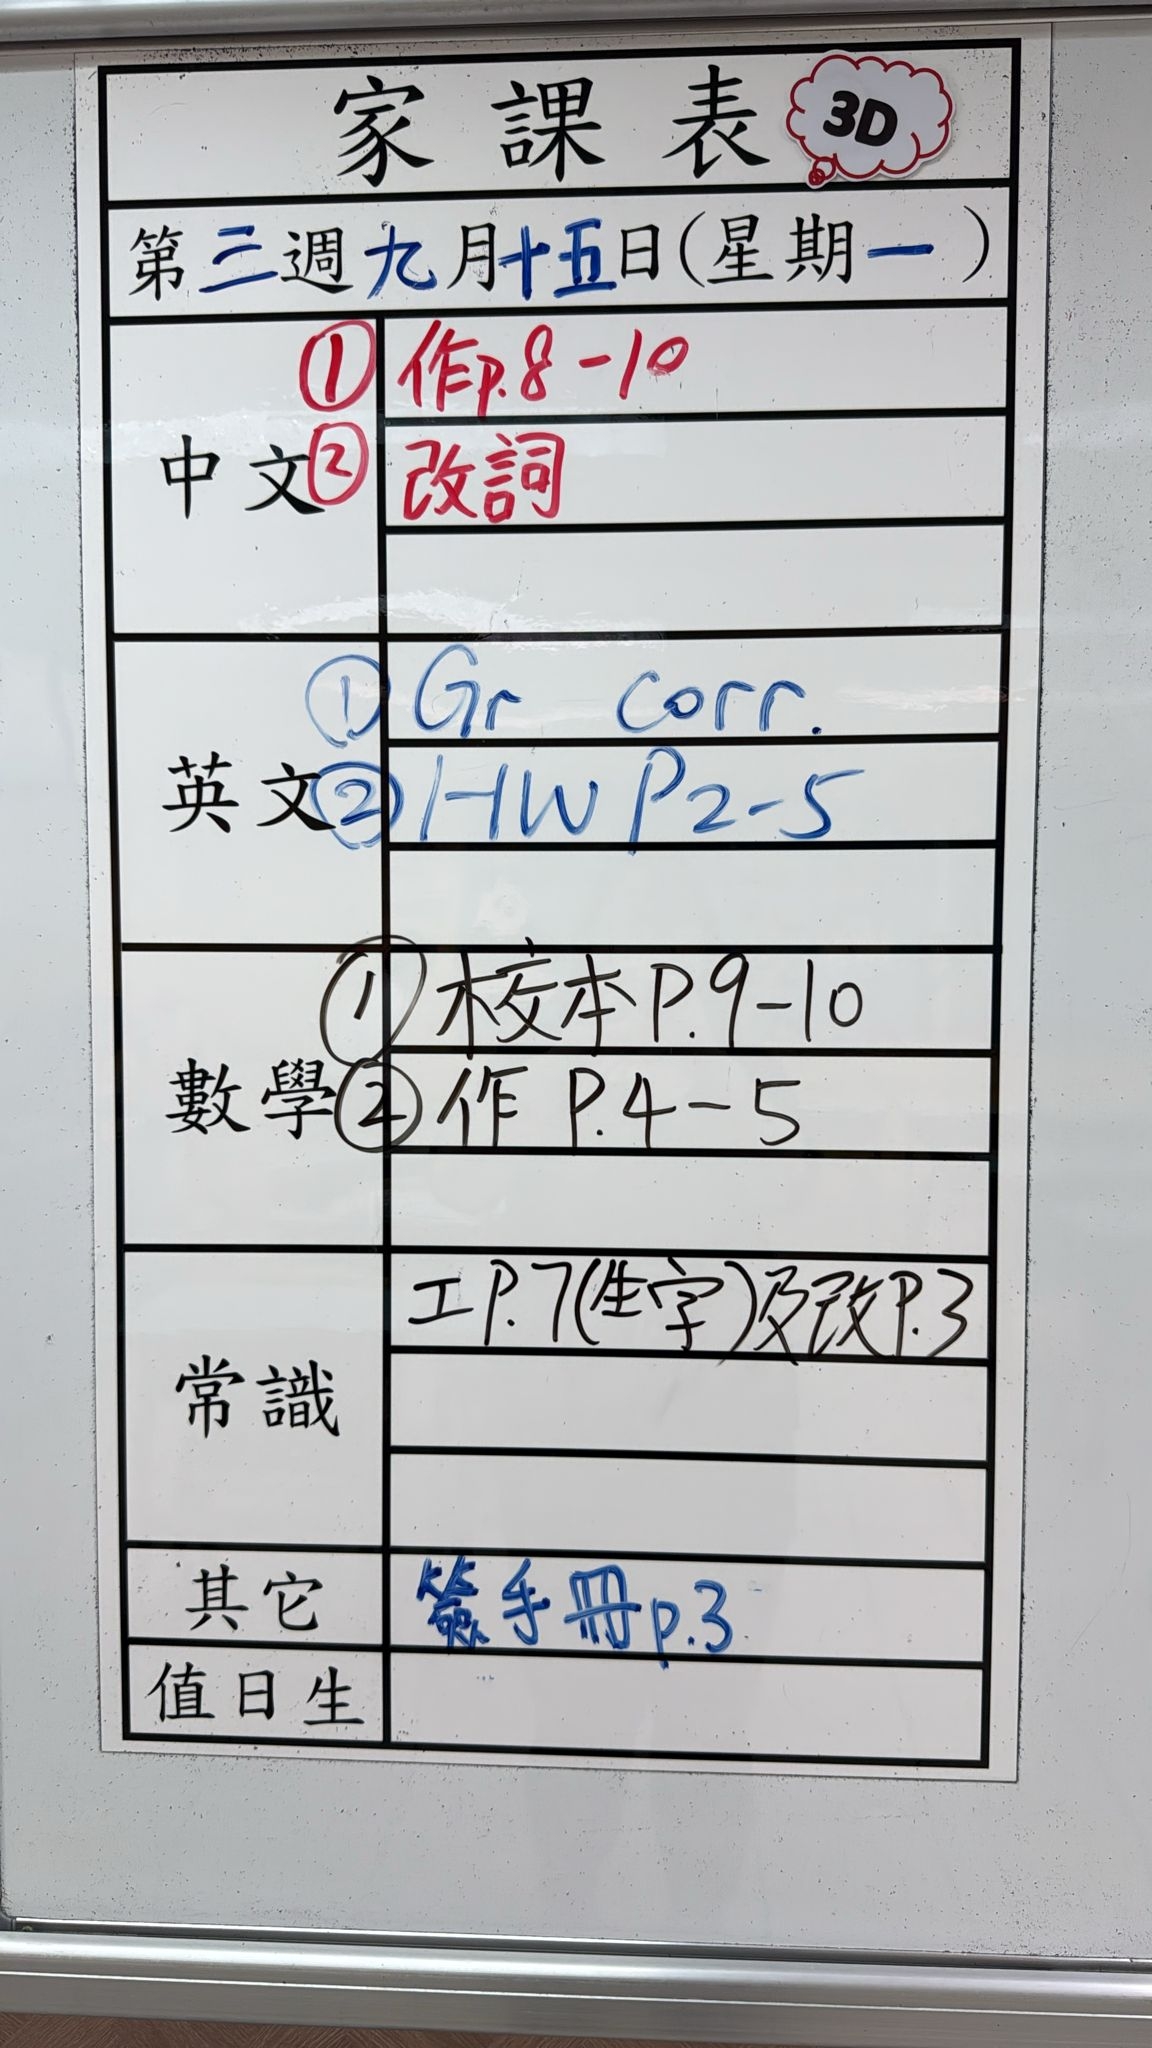 家課表 3D
第三週九月十五日(星期一)
中文
① 作p.8-10
② 改詞
英文
① Gr corr.
② HW P2-5
數學
① 校本P.9-10
② 作 P.4-5
常識
工P.7(生字)及改P.3
其它
簽手冊p.3
值日生